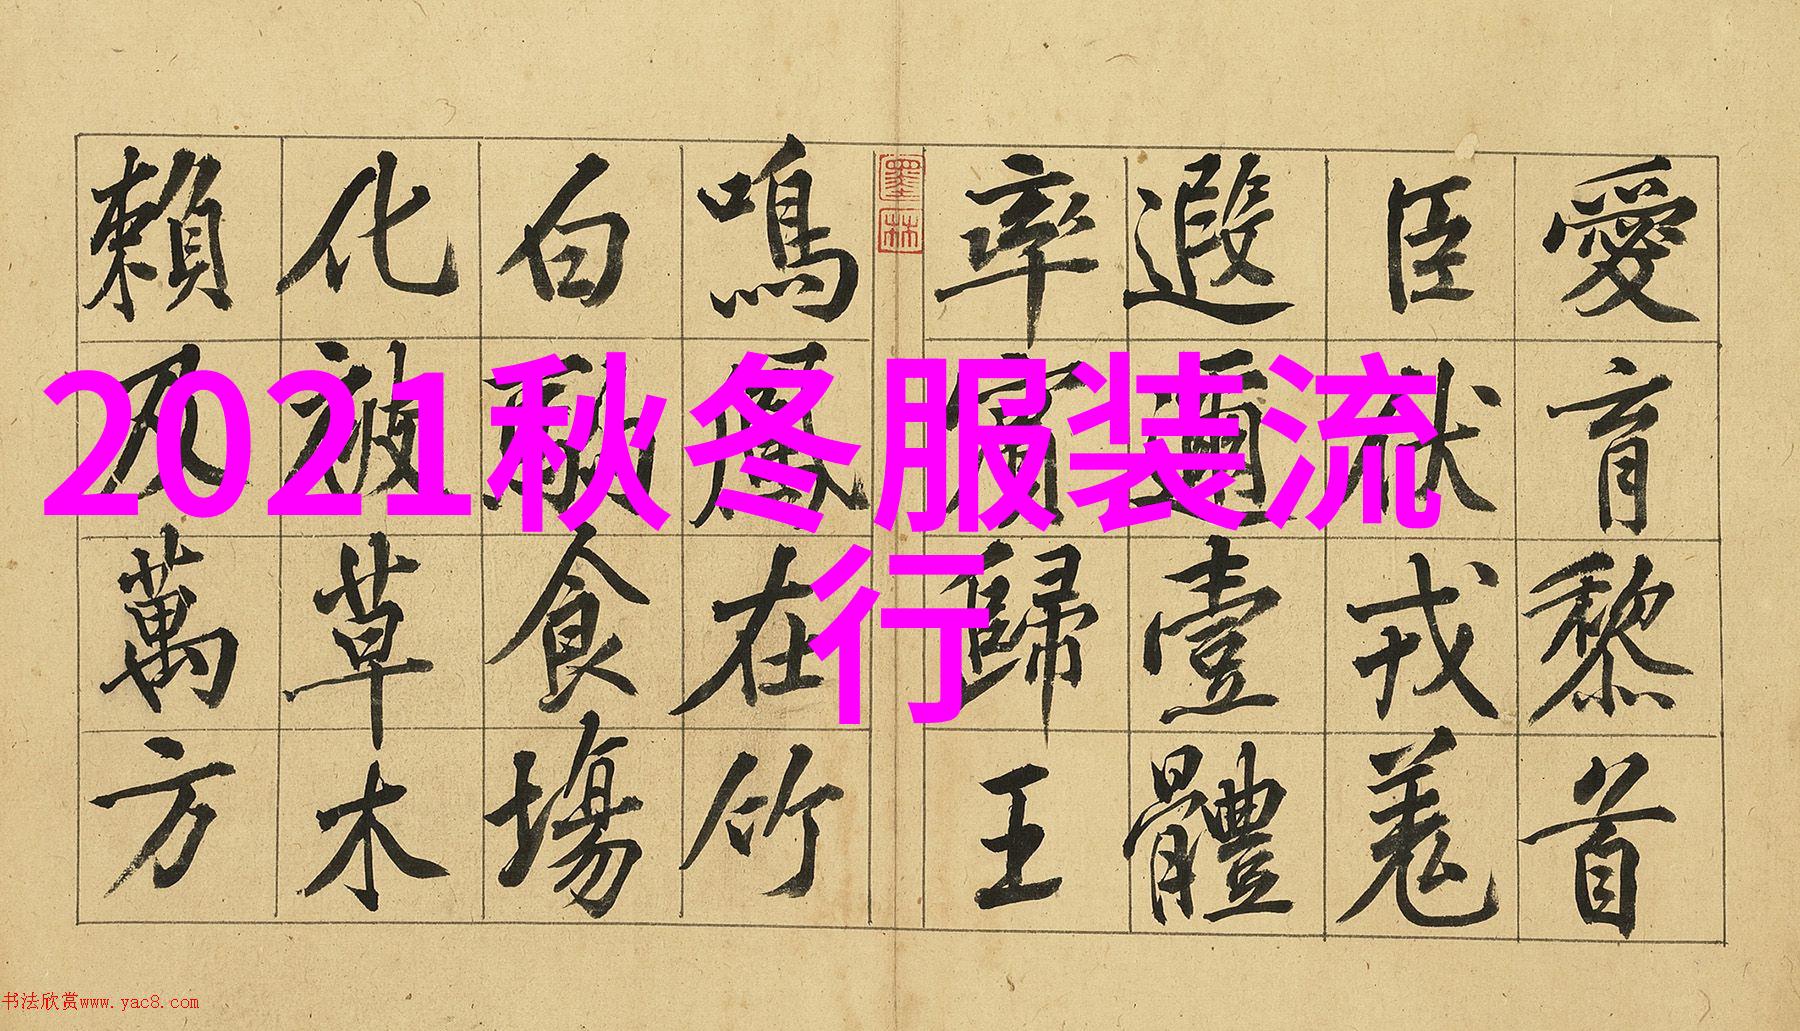 2021秋冬服装流
行
愛育黎首
臣伏戎羌
遐邇壹體
率賓歸王
墨林
鳴鳳在竹
白駒食場
化被草木
賴及萬方
书法欣赏www.yac8.com